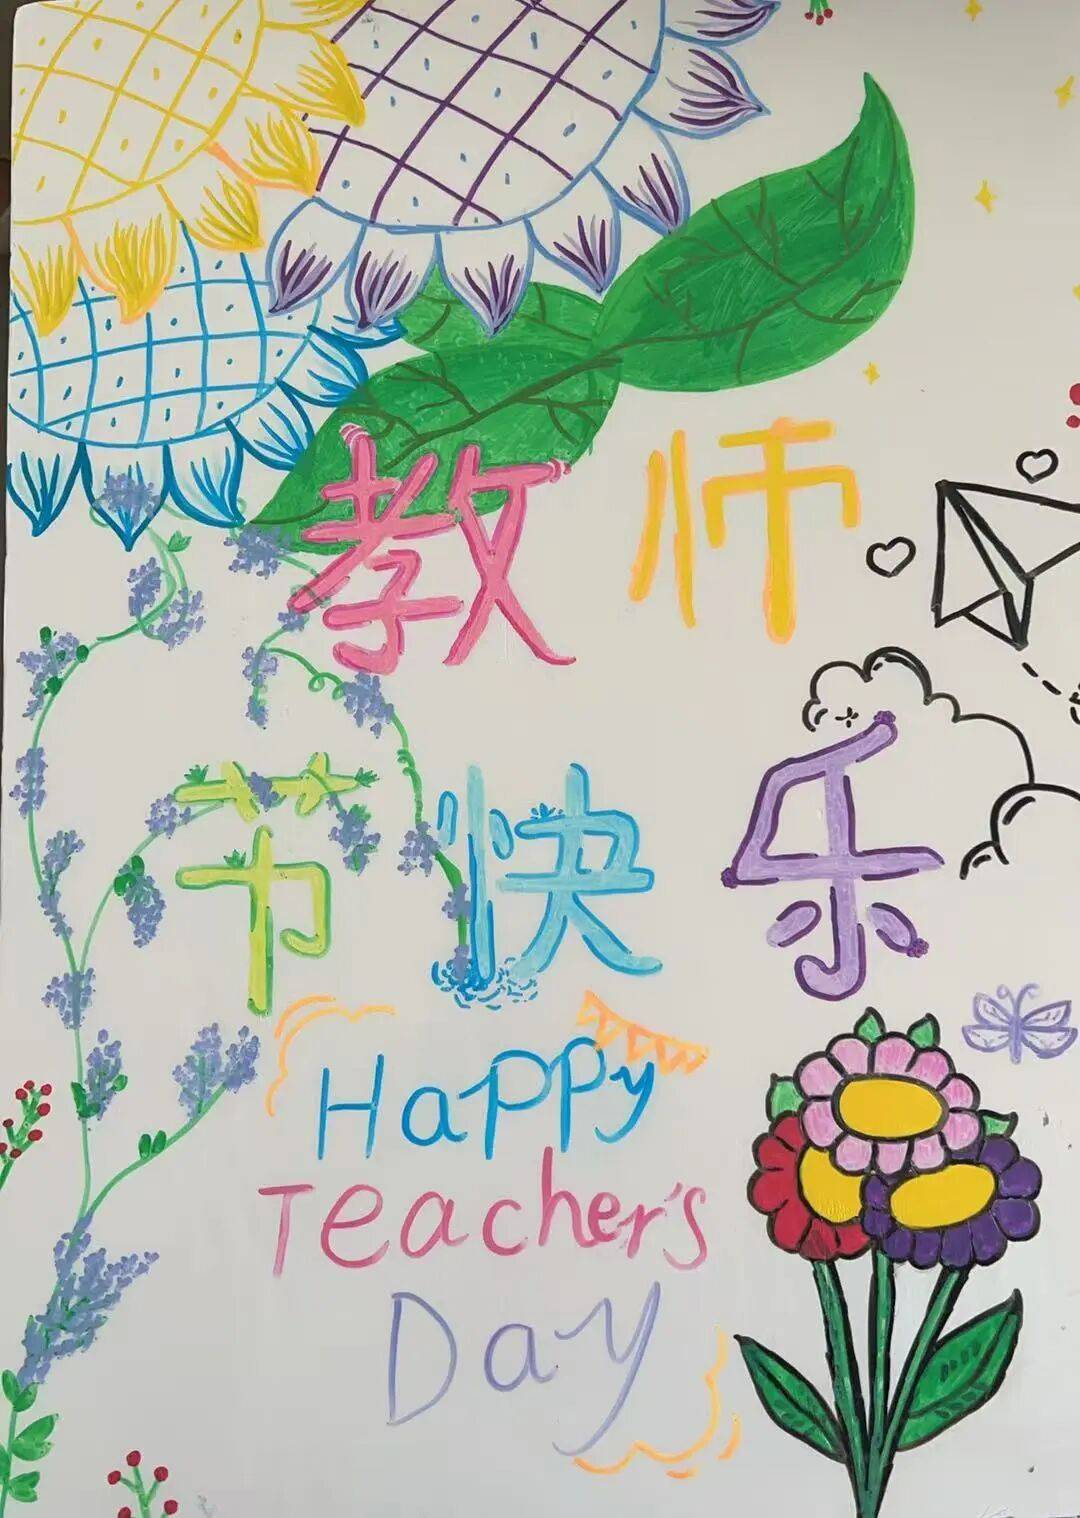 教师
节快乐
Happy
Teacher's
Day